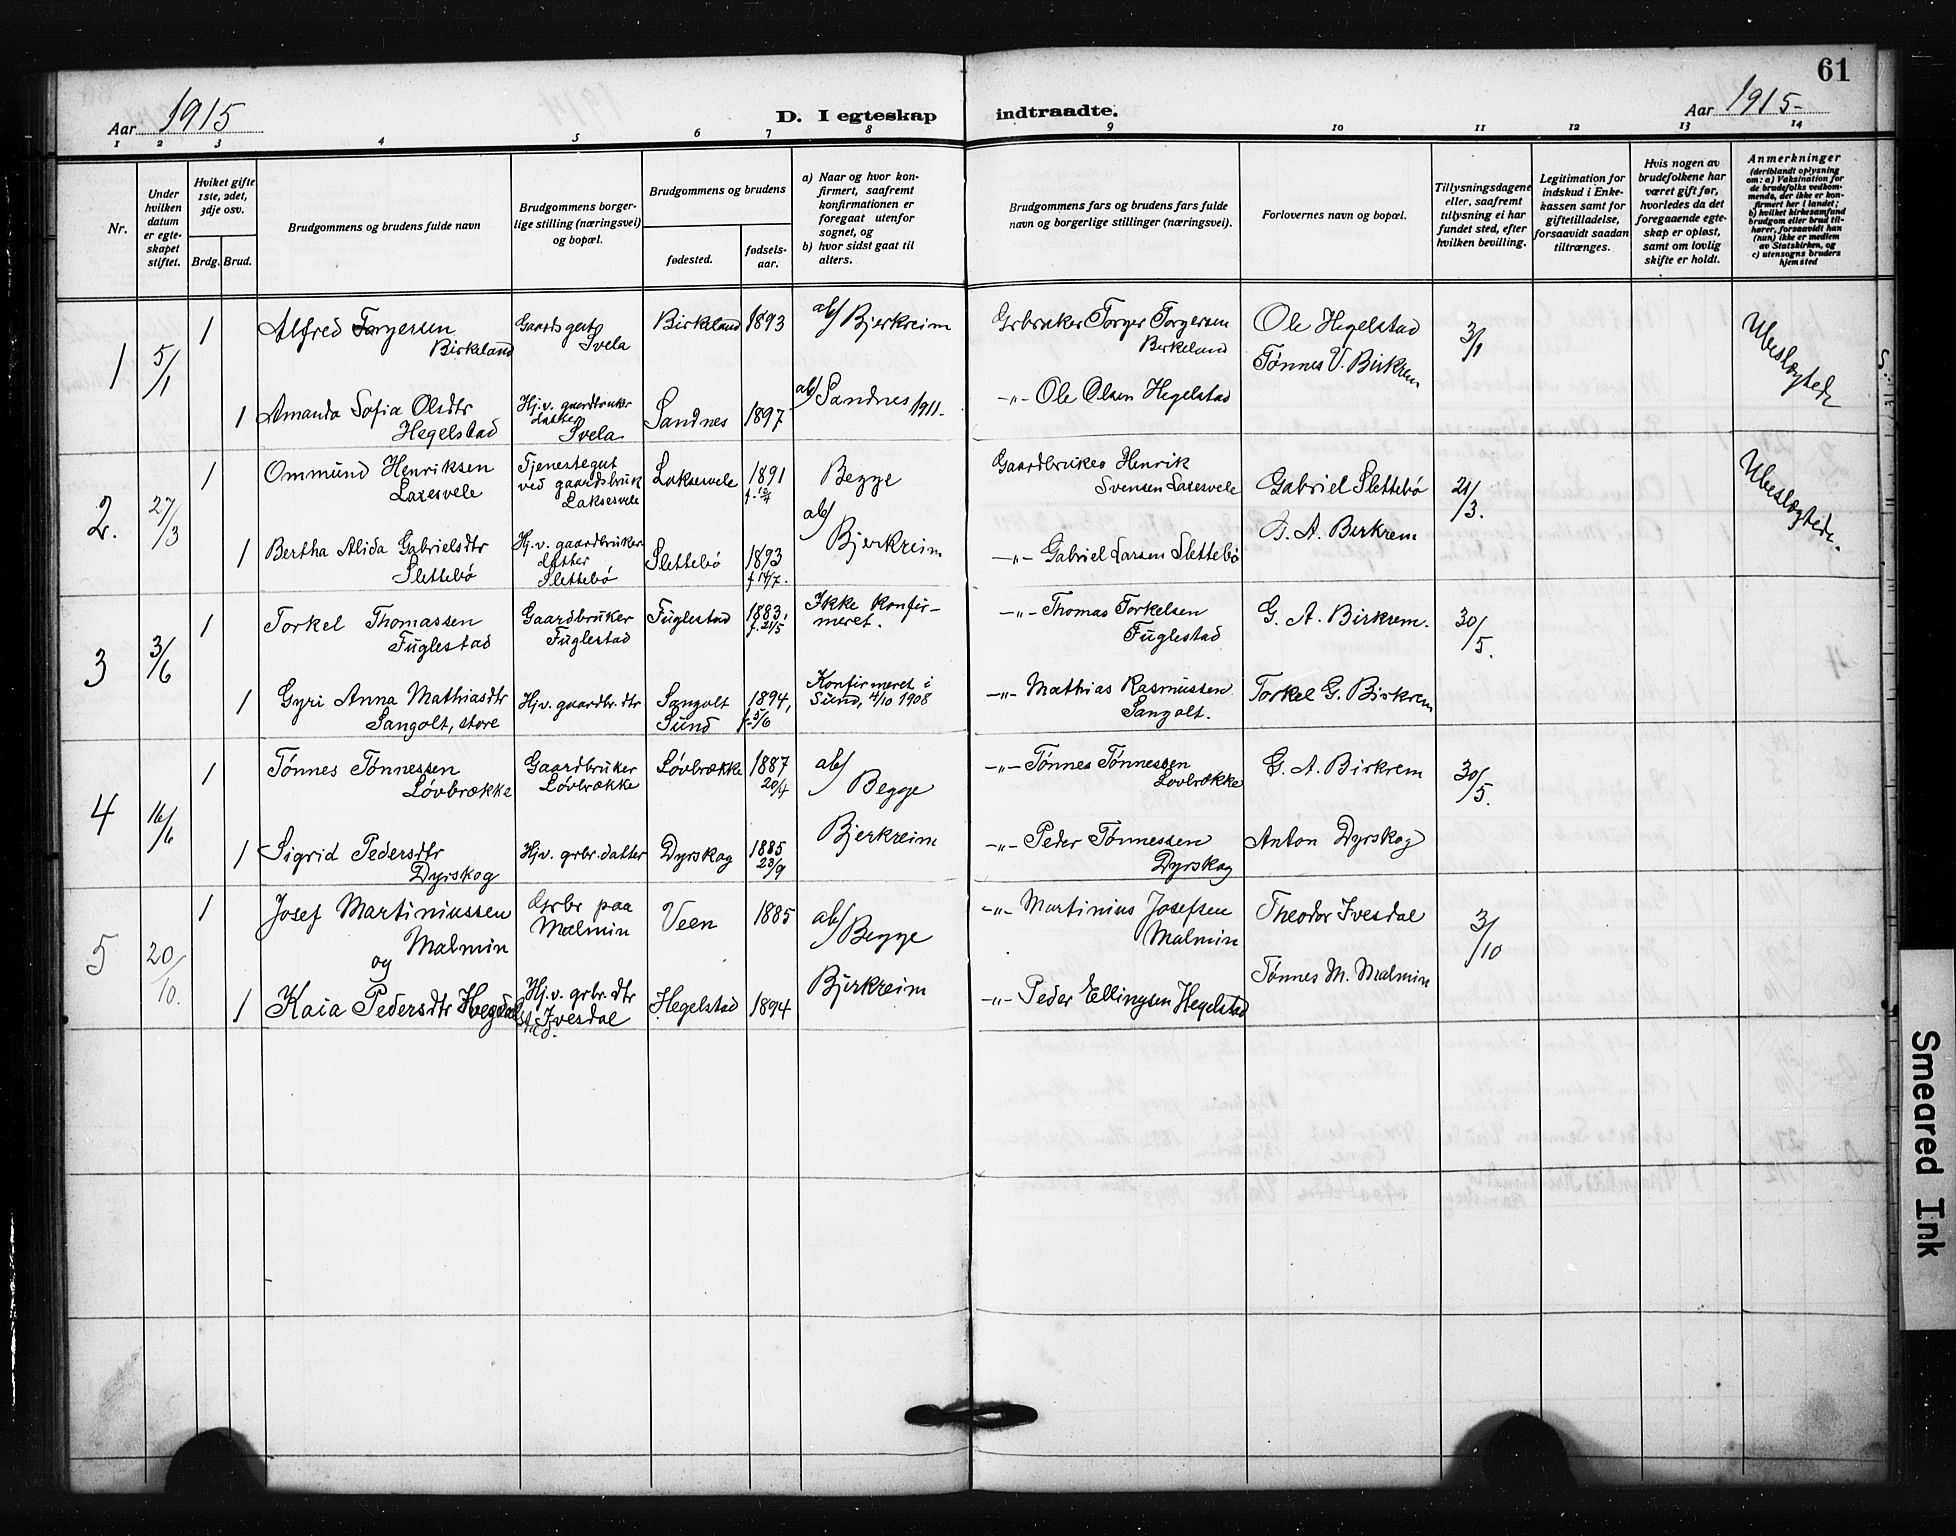 61
Aar 1915
D. I egteskap indtraadte.
Aar 1915-
1 2 3 4 5 6 7 8 9 10 11 12 13 14
Nr.
Under
hvilken
datum
er egte-
skapet
stiftet.
Hviket gifte
1ste, 2det,
3dje osv.
Brdg. Brud.
Brudgommens og brudens fulde navn
Brudgommens borger-
lige stilling (næringsvei)
og bopæl.
Brudgommens og brudens
fødested.
fødsels-
aar.
a) Naar og hvor kon-
firmert, saafremt
konfirmationen er
foregaat utenfor
sognet, og
b) hvor sidst gaat til
alters.
Brudgommens fars og brudens fars fulde
navn og borgerlige stillinger (næringsvei).
Forlovernes navn og bopæl.
Tillysningsdagene
eller, saafremt
tillysning ei har
fundet sted, efter
hvilken bevilling.
Legitimation for
indskud i Enke-
kassen samt for
giftetilladelse,
forsaavidt saadan
tiltrænges.
Hvis nogen av
brudefolkene har
været gift før,
hvorledes da det
foregaaende egte-
skap er opløst,
samt om lovlig
skifte er holdt.
Anmerkninger
(deriblandt oplysning
om: a) Vaksination for
de brudefolks vedkom-
mende, der ikke er kon-
firmert her i landet;
b) hvilket kirkesamfund
brudgom eller brud til-
hører, forsaavidt han
(hun) ikke er medlem
av Statskirken, og
c) utensogns bruders
hjemsted
1 5/1
1 Alfred Torgersen
Birkeland
Gaardsgut
Svela
Birkeland 1893 ab/ Bjerkreim
Grbruker Torger Torgersen
Birkeland
Ole Hegelstad
Tønnes V. Birkrem
3/1
Ubeslægtede
1 Amanda Sofia Olsdtr
Hegelstad
Hj.v. gaardbruker
datter
Svela
Sandnes 1897 ab/ Sandnes 1911.
-"- Ole Olsen Hegelstad
2. 27/3
1 Ommund Henriksen
Laxesvele
Tjenestegut
ved gaardsbruk
Laksesvele
Laksesvele 1891
f. 12/4
Begge
ab/
Bjerkreim
Gaardbruker Henrik
Svensen Laxesvele
Gabriel Slettebø
G. A. Birkrem
21/3.
Ubeslægtede.
1 Bertha Alida Gabrielsdtr
Slettebø
Hj.v. gaardbruker
datter
Slettebø
Slettebø 1893
f 14/7.
-"- Gabriel Larsen Slettebø
3 3/6
1 Torkel Thomassen
Fuglestad
Gaardbruker
Fuglestad
Fuglestad 1883,
f. 21/5
Ikke konfir-
meret.
-"- Thomas Torkelsen
Fuglestad
G. A. Birkrem.
30/5.
1 Gyri Anna Mathiasdtr
Sangolt, store
Hj.v. gaardbr. dtr
Sangolt
Sund
1894,
f. 5/6
Konfirmeret i
Sund, 4/10 1908
-"- Mathias Rasmussen
Sangolt.
Torkel G. Birkrem
4 16/6
1 Tønnes Tønnessen
Løvbrække
Gaardbruker
Løvbrække
Løvbrække 1887
20/4
ab/
Begge
Bjerkreim
-"- Tønnes Tønnessen
Løvbrække
G. A. Birkrem
30/5.
1 Sigrid Pedersdtr
Dyrskog
Hjv. grbr. datter
Dyrskog 1885
23/9
-"- Peder Tønnessen
Dyrskog
Anton Dyrskog
5 20/10.
1 Josef Martiniussen
Malmin
og
Grbr paa
Malmin
Veen 1885 ab/
Begge
Bjerkreim
-"- Martinius Josefsen
Malmin
Theodor Ivesdal
Tønnes M. Malmin
3/10
1 Kaia Pedersdtr
Hj.v. grbr. dtr
Ivesdal
Hegelstad 1894
-"- Peder Ellingsen Hegelstad
Smeared Ink